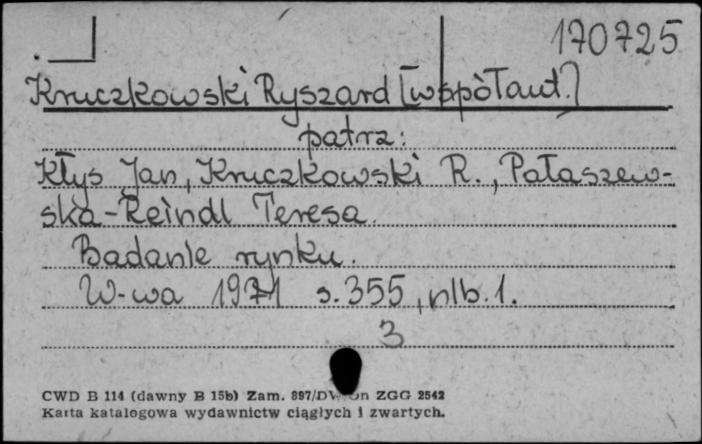 170725
Kruczkowski Ryszard [wspòłaut.]
patrz:
Kłys Jan, Kruczkowski R., Pałaszew-
ska-Reindl Teresa.
Badanie rynku.
W-wa 1971 s. 355, nlb. 1.
3
CWD B 114 (dawny B 15b) Zam. 897/DW ZGG 2542
Karta katalogowa wydawnictw ciągłych i zwartych.